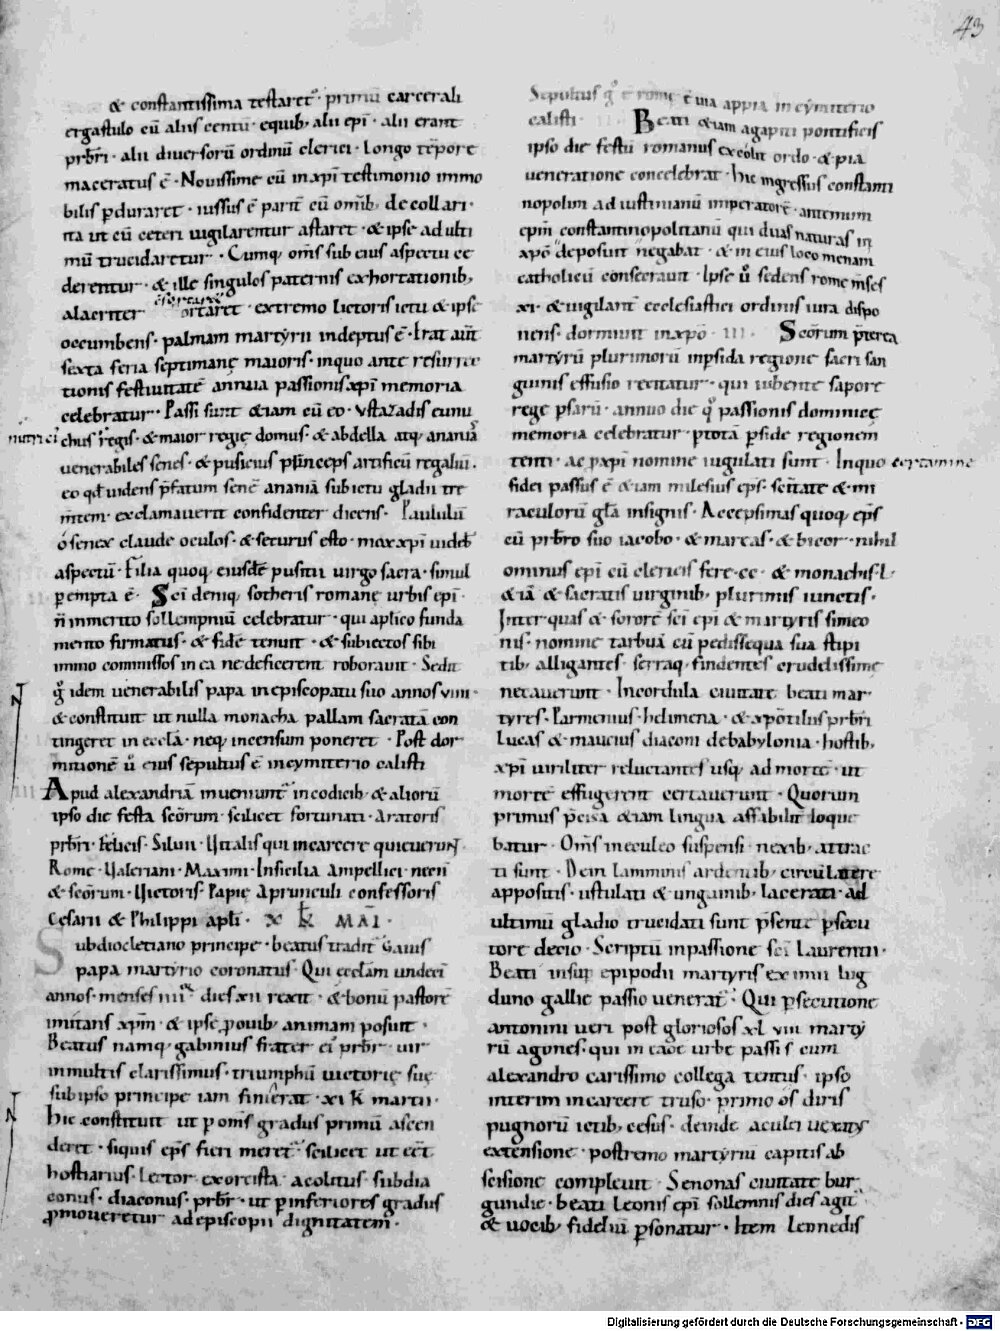 43
& constantissima testaret᷑ · primū carcerali
ergastulo cū aliis centū · equib; alii epī · alii erant
prb̄ri · alii diuersorū ordinū clerici · Longo tēpore
maceratus ē · Nouissime cū in xp̄i testimonio immo
bilis ꝑduraret · iussus ē parit̄ cū omīb; decollari ·
ita ut cū ceteri iugularentur astaret · & ipse ad ulti
mū trucidaretur · Cumq; om̄s sub eius aspectu ce
derentur · & ille singulos paternis exhortationib;
alacriter exortaret · extremo lictoris ictu & ipse
occumbens · palmam martyrii indeptus ē · Erat aut̄
sexta feria septimanę maioris · in quo ante resurrec
tionis festiuitatē annua passionis xp̄i memoria
celebratur · Passi sunt &iam cū eo · Vstazadis eunu
chus regis · & maior regię domus · & abdella atq; ananiā
nutrici
uenerabiles senes · & pusicius prīnceps artificū regaliū ·
eo qđ uidens p̄fatum senē ananiā sub ictu gladii tre
m̄tem · exclamauerit confidenter dicens · Paululū
ó senex claude oculos · & securus esto · mox xp̄i uideb
aspectū · Filia quoq; eiusdē pusicii uirgo sacra · simul
ꝑempta ē · Sc̄i deniq; sotheris romanę urbis epī ·
n̄ immerito sollempniū celebratur · qui aplico funda
mento firmatus · & fidē tenuit · & subiectos sibi
immo commissos in ea ne deficerent roborauit · Sedit
g̊ idem uenerabilis papa in episcopatu suo annos VIIII ·
& constituit ut nulla monacha pallam sacratā con
tingeret in eccl̄a · neq; incensum poneret · Post dor
mitionē ū eius sepultus ē in cymiterio calisti
Apud alexandriā inueniunt᷑ in codicib; & aliorū
ipso die festa sc̄orum · scilicet fortunati · Aratoris
prb̄ri · Felicis · Siluii · Vitalis qui in carcere quieuerunt
Rome · Valeriani · Maximi · In sicilia Ampellici · necn̄
& sc̄orum · Victoris · Papię Aprunculi confessoris
Cesarii & Philippi apl̄i · X K̄ MAI ·
Sub diocletiano principe · beatus tradit᷑ Gaius
papa martyrio coronatus · Qui eccl̄am undeci
annos · menses IIII dies XII rexit · & bonū pastorē
imitans xp̄m · & ipse ꝓ ouib; animam posuit ·
Beatus namq; gabinius frater ei᷒ prb̄r · uir
in multis clarissimus · triumphū uictorię suę
sub ipso principe iam finierat · XI K̄ martii ·
Hic constituit ut ꝑ om̄s gradus primū ascen
deret · siquis ep̄s fieri meret᷑ · scilicet ut eēt
hostiarius · Lector · exorcista · acolitus · subdia
conus · diaconus · prb̄r · ut ꝑ inferiores gradus
ꝓmoueretur ad episcopii dignitatem ·
Sepultus g̊ ē romę ē uia appia in cymiterio
calisti · Beati &iam agapiti pontificis
ipso die festū romanus excolit ordo · & pia
ueneratione concelebrat · hic ingressus constanti
nopolim ad iustinianū imperatorē · antemium
epm̄ constantinopolitanū qui duas naturas in
xp̄o deposuit negabat · & in eius loco menam
catholicū consecrauit · Ipse ū sedens rome mēses
XI · & uigilant̄ ecclesiastici ordinis iura dispo
nens · dormiuit in xp̄o · III · Sc̄orum p̄terea
martyrū plurimorū in ꝑsida regione sacri san
guinis effusio recitatur · qui iubente sapore
rege ꝑsarū · annuo die q̊ passionis dominicę
memoria celebratur · ꝑ totā ꝑside regionem
tenti · ac ꝓ xp̄i nomine iugulati sunt · In quo certamine
fidei passus ē &iam milesius ep̄s · sc̄itate & mi
raculorū gl̄a insignis · Accepsimas quoq; ep̄s
cū prb̄ro suo iacobo · & mareas · & bicor · nihil
ominus epī cū clericis fere · cc · & monachis · L ·
& iā & sacratis uirginib; plurimis iunctis ·
Inter quas & sororē sc̄i epī & martyris simeo
nis · nomine tarbuā cū pedissequa sua stipi
tib; alligantes · serraq; findentes crudelissime
necauerunt · In cordula ciuitate beati mar
tyres · Parmenius · helimena · & xp̄otilus prb̄ri
Lucas & mucius diaconi de babylonia · hostib;
xp̄i uiriliter reluctantes usq; ad mortē · ut
mortē effugerent certauerunt · Quorum
primus p̄cisa &iam lingua affabilit̄ loque
batur · Om̄s in eculeo suspensi · nexib; attrac
ti sunt · Dein lamminis ardentib; circūlatere
appositis · ustulati & ungulib; lacerati · ad
ultimū gladio trucidati sunt p̄sente ꝑsecu
tore decio · Scriptū in passione sc̄i Laurentii ·
Beati insup̄ epipodii martyris eximii lug
duno gallię passio uenerat᷑ · Qui ꝑsecutione
antonini ueri post gloriosos XLVIII marty
rū agones · qui in eadē urbe passi s̄ cum
alexandro carissimo collega tentus · ipso
interim in carcere truso · primo os diris
pugnorū ictib; cesus · deinde aculei uexatus
extensione · postremo martyriū capitis ab
scisione compleuit · Senonas ciuitate bur
gundię · beati Leonis epī sollemnis dies agit᷑
& uocib; fideliū ꝑsonatur · Item Lennedis
Digitalisierung gefördert durch die Deutsche Forschungsgemeinschaft - DFG